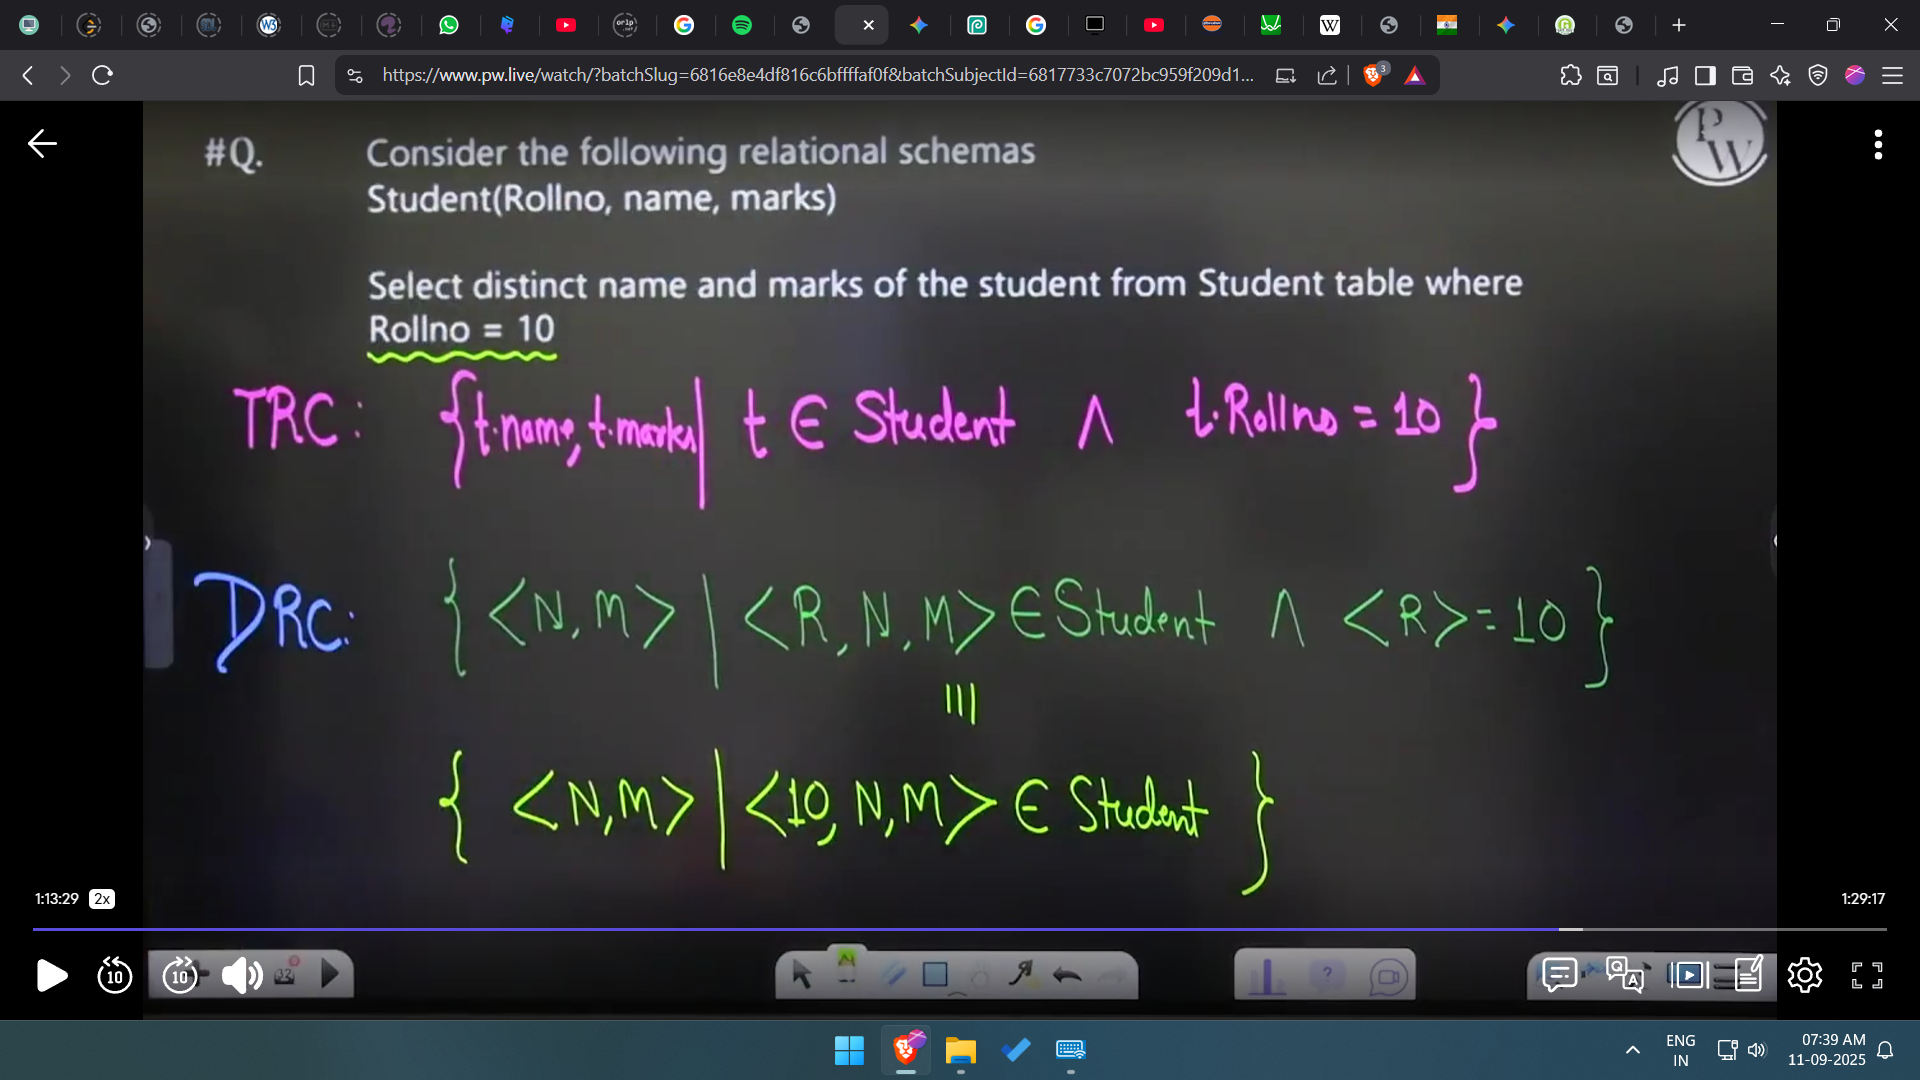 https://www.pw.live/watch/?batchSlug=6816e8e4df816c6bffffaf0f&batchSubjectId=6817733c7072bc959f209d1...
3
#Q. Consider the following relational schemas
Student(Rollno, name, marks)
PW
Select distinct name and marks of the student from Student table where
Rollno = 10
TRC: {t.name, t.marks| t ∈ Student ∧ t.Rollno = 10}
DRC: {<N, M> | <R, N, M> ∈ Student ∧ <R> = 10}
≡
{<N, M> | <10, N, M> ∈ Student}
1:13:29 2x 1:29:17
10 10 32
ENG
IN
07:39 AM
11-09-2025